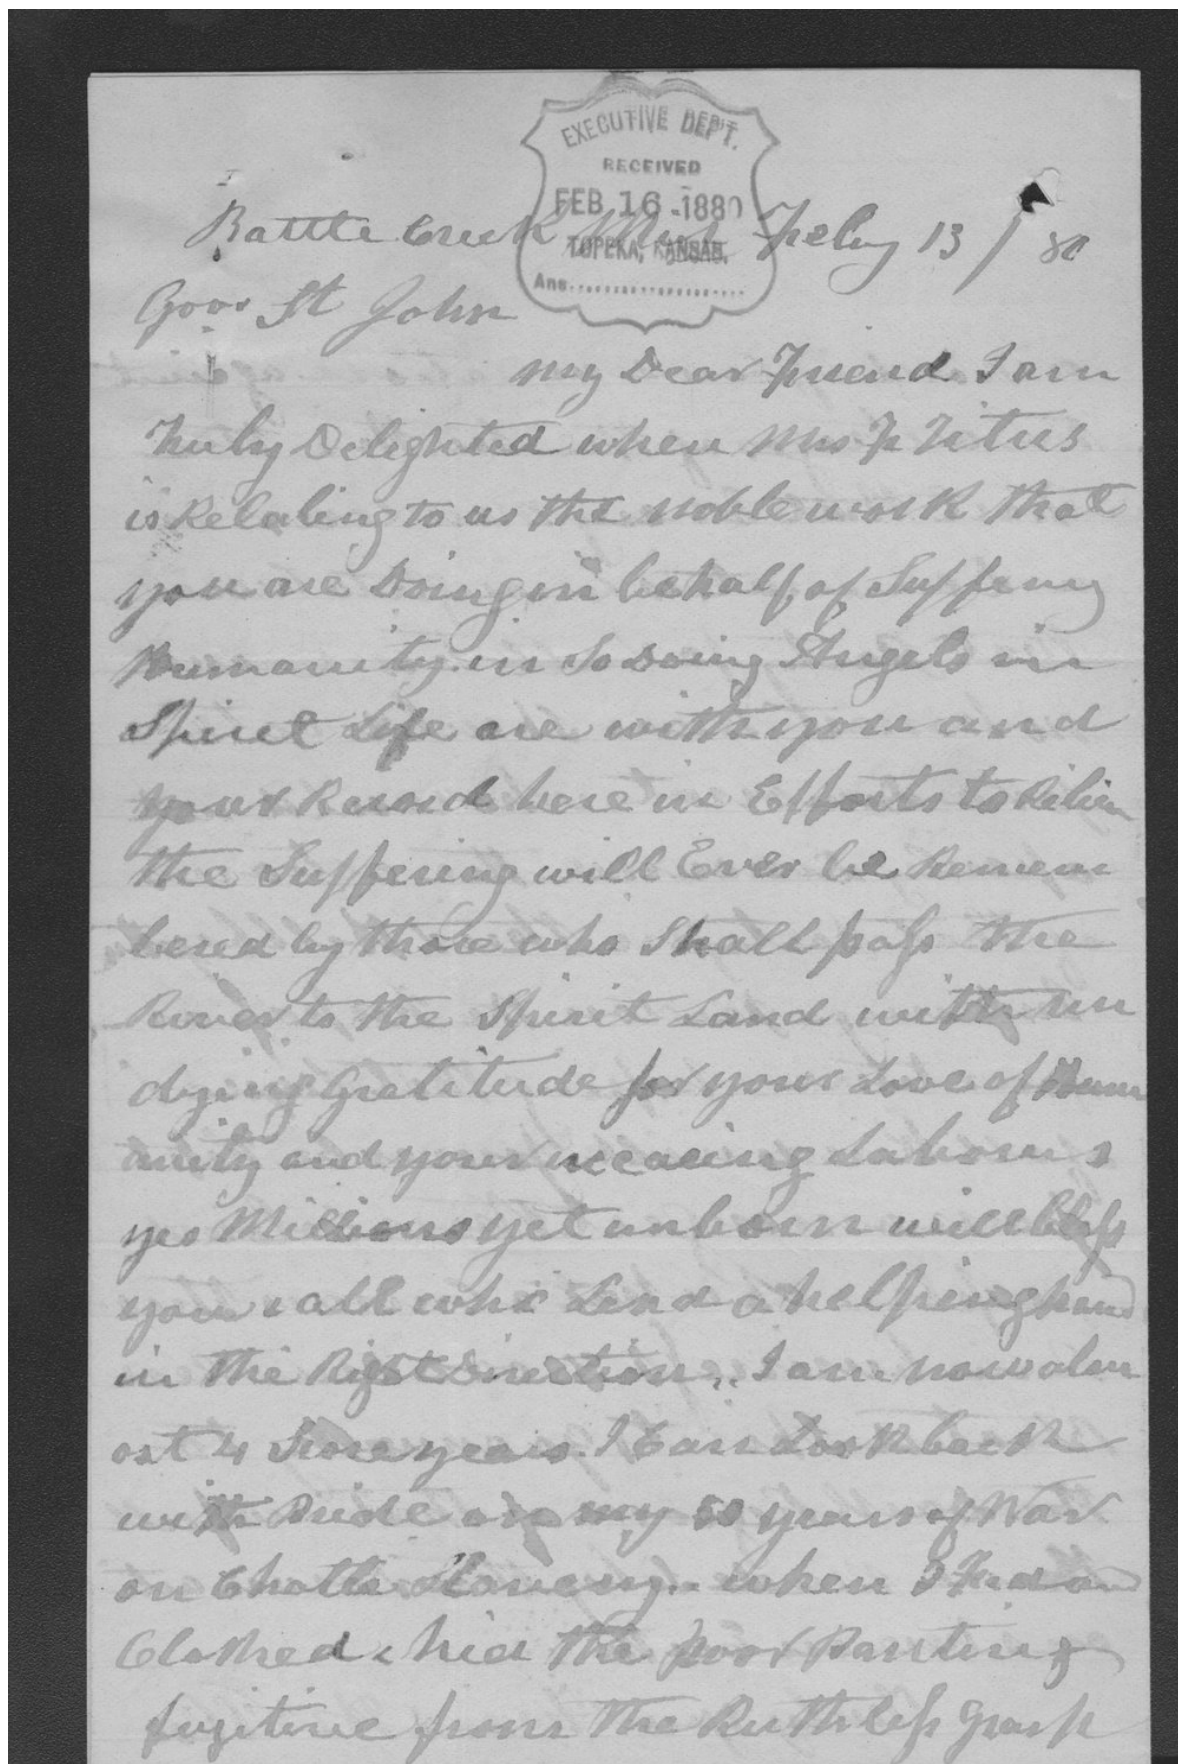 EXECUTIVE DEPT.
RECEIVED
FEB 16 1880
TOPEKA, KANSAS.
Ans
Battle Creek Mich Feby 13 / 80
Govr St John
my Dear Friend I am
Truly Delighted when Mrs F Titus
is Relating to us the noble work that
you are Doing in behalf of Suffering
Humanity in So Doing Angels in
Spiret Life are with you and
your Record here in Efforts to Reliev
the Suffering will Ever be Remem
bered by those who Shall pass the
River to the Spirit Land with un
dying Gratitude for your Love of Hum
anity and your unceasing Labours
yes Millions yet unborn will bless
you & all who Lend a helping hand
in the Right Direction,, I am now alm
ost 4 Score years. I Can Look back
with Pride on my 50 years of War
on Chattle Slavery.. when I Fed and
Clothed & hid the poor Panting
fugitive from the Ruthless Grasp